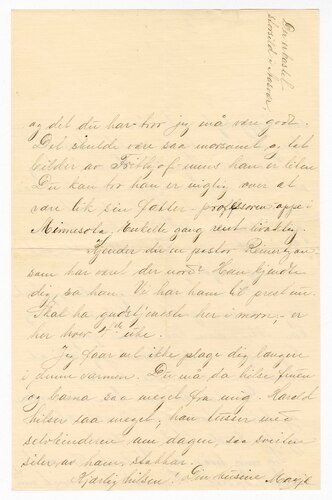 og det du har tror jeg må være godt.
Det skulde være saa morsomt å tat
bilder av Fridtjof mens han er liten
Du kan tro han er vigtig over at
være lik sin fætter - professoren oppe i
Minnesota. Enkelte gang rent
Kjender du en pastor
som har været der nord? Han kjendte
dig, sa han. Vi har ham til prest nu.
Skal ha gudstjeneste her i morn, er
her hver 4de uke.
Jeg faar vel ikke plage dig længere
i denne varmen. Du må da hilse fruen
og barna saa meget fra mig. Harald
hilser saa meget, han tusser med
selvbinderen um dagen, saa sveiten
siler av ham, stakkar.
Hjertlig hilsen! Din kusine Margit